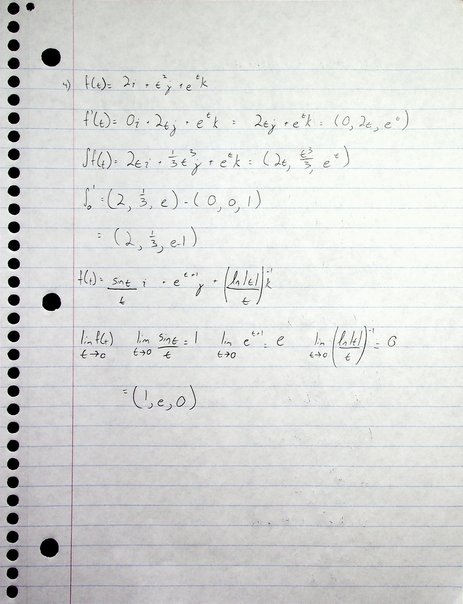 4) f(t) = 2i + t²j + eᵗk
f'(t) = 0i + 2tj + eᵗk = 2tj + eᵗk = (0, 2t, eᵗ)
∫f(t) = 2ti + 1/3 t³j + eᵗk = (2t, t³/3, eᵗ)
∫₀¹ = (2, 1/3, e) - (0, 0, 1)
= (2, 1/3, e-1)
f(t) = sint/t i + eᵗ⁺¹j + (ln|t|/t)⁻¹k
lim t→0 f(t) lim t→0 sint/t = 1 lim t→0 eᵗ⁺¹ = e lim t→0 (ln|t|/t)⁻¹ = 0
= (1, e, 0)